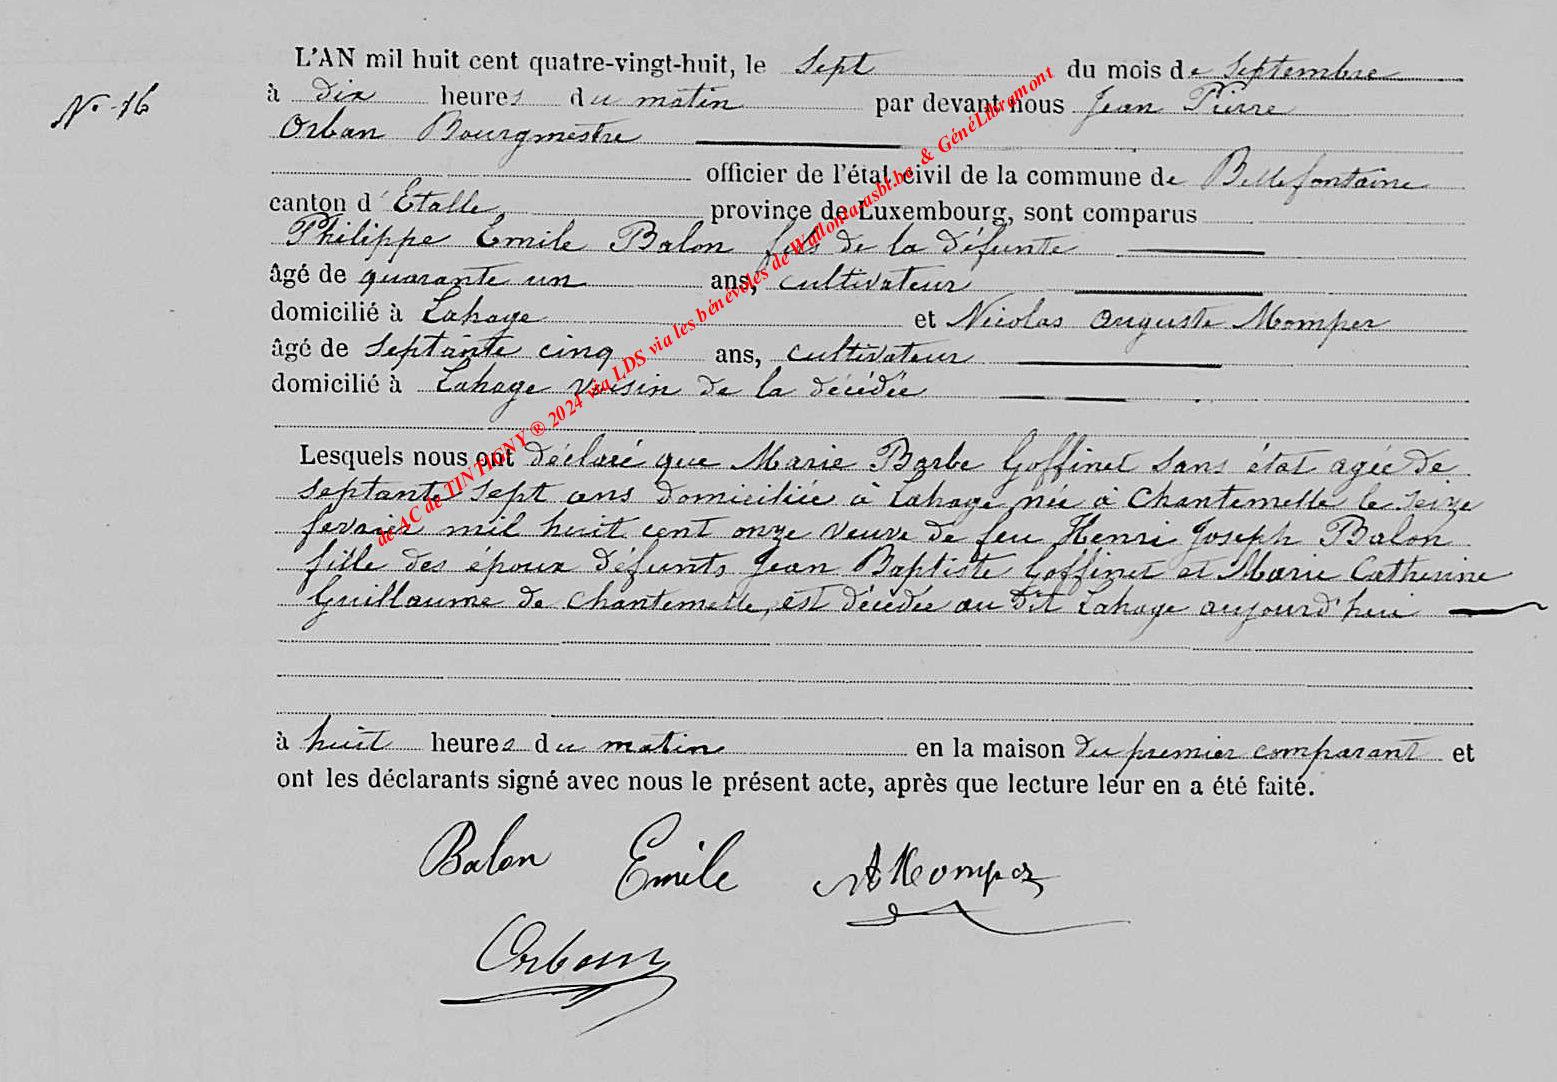 L'AN mil huit cent quatre-vingt-huit, le Sept du mois de Septembre
No. 16
à dix heures du matin par devant nous Jean Pierre
Orban Bourgmestre
officier de l'état civil de la commune de Bellefontaine
canton d'Etalle province de Luxembourg, sont comparus
Philippe Emile Balon fils de la défunte
âgé de quarante un ans, cultivateur
domicilié à Lahage et Nicolas Auguste Momper
âgé de septante cinq ans, cultivateur
domicilié à Lahage voisin de la décédée
Lesquels nous ont déclaré que Marie Barbe Goffinet sans état agée de
septante sept ans domiciliée à Lahage née à Chantemelle le seize
fevrier mil huit cent onze veuve de feu Henri Joseph Balon
fille des époux défunts Jean Baptiste Goffinet et Marie Catherine
Guillaume de Chantemelle, est décédée au dit Lahage aujourd'hui
à huit heures du matin en la maison du premier comparant et
ont les déclarants signé avec nous le présent acte, après que lecture leur en a été faite.
Balon Emile NA Momper
Orban
de AC de TINTIGNY ® 2024 via LDS via les bénévoles de Walloniarasbl.be & GénéLibramont